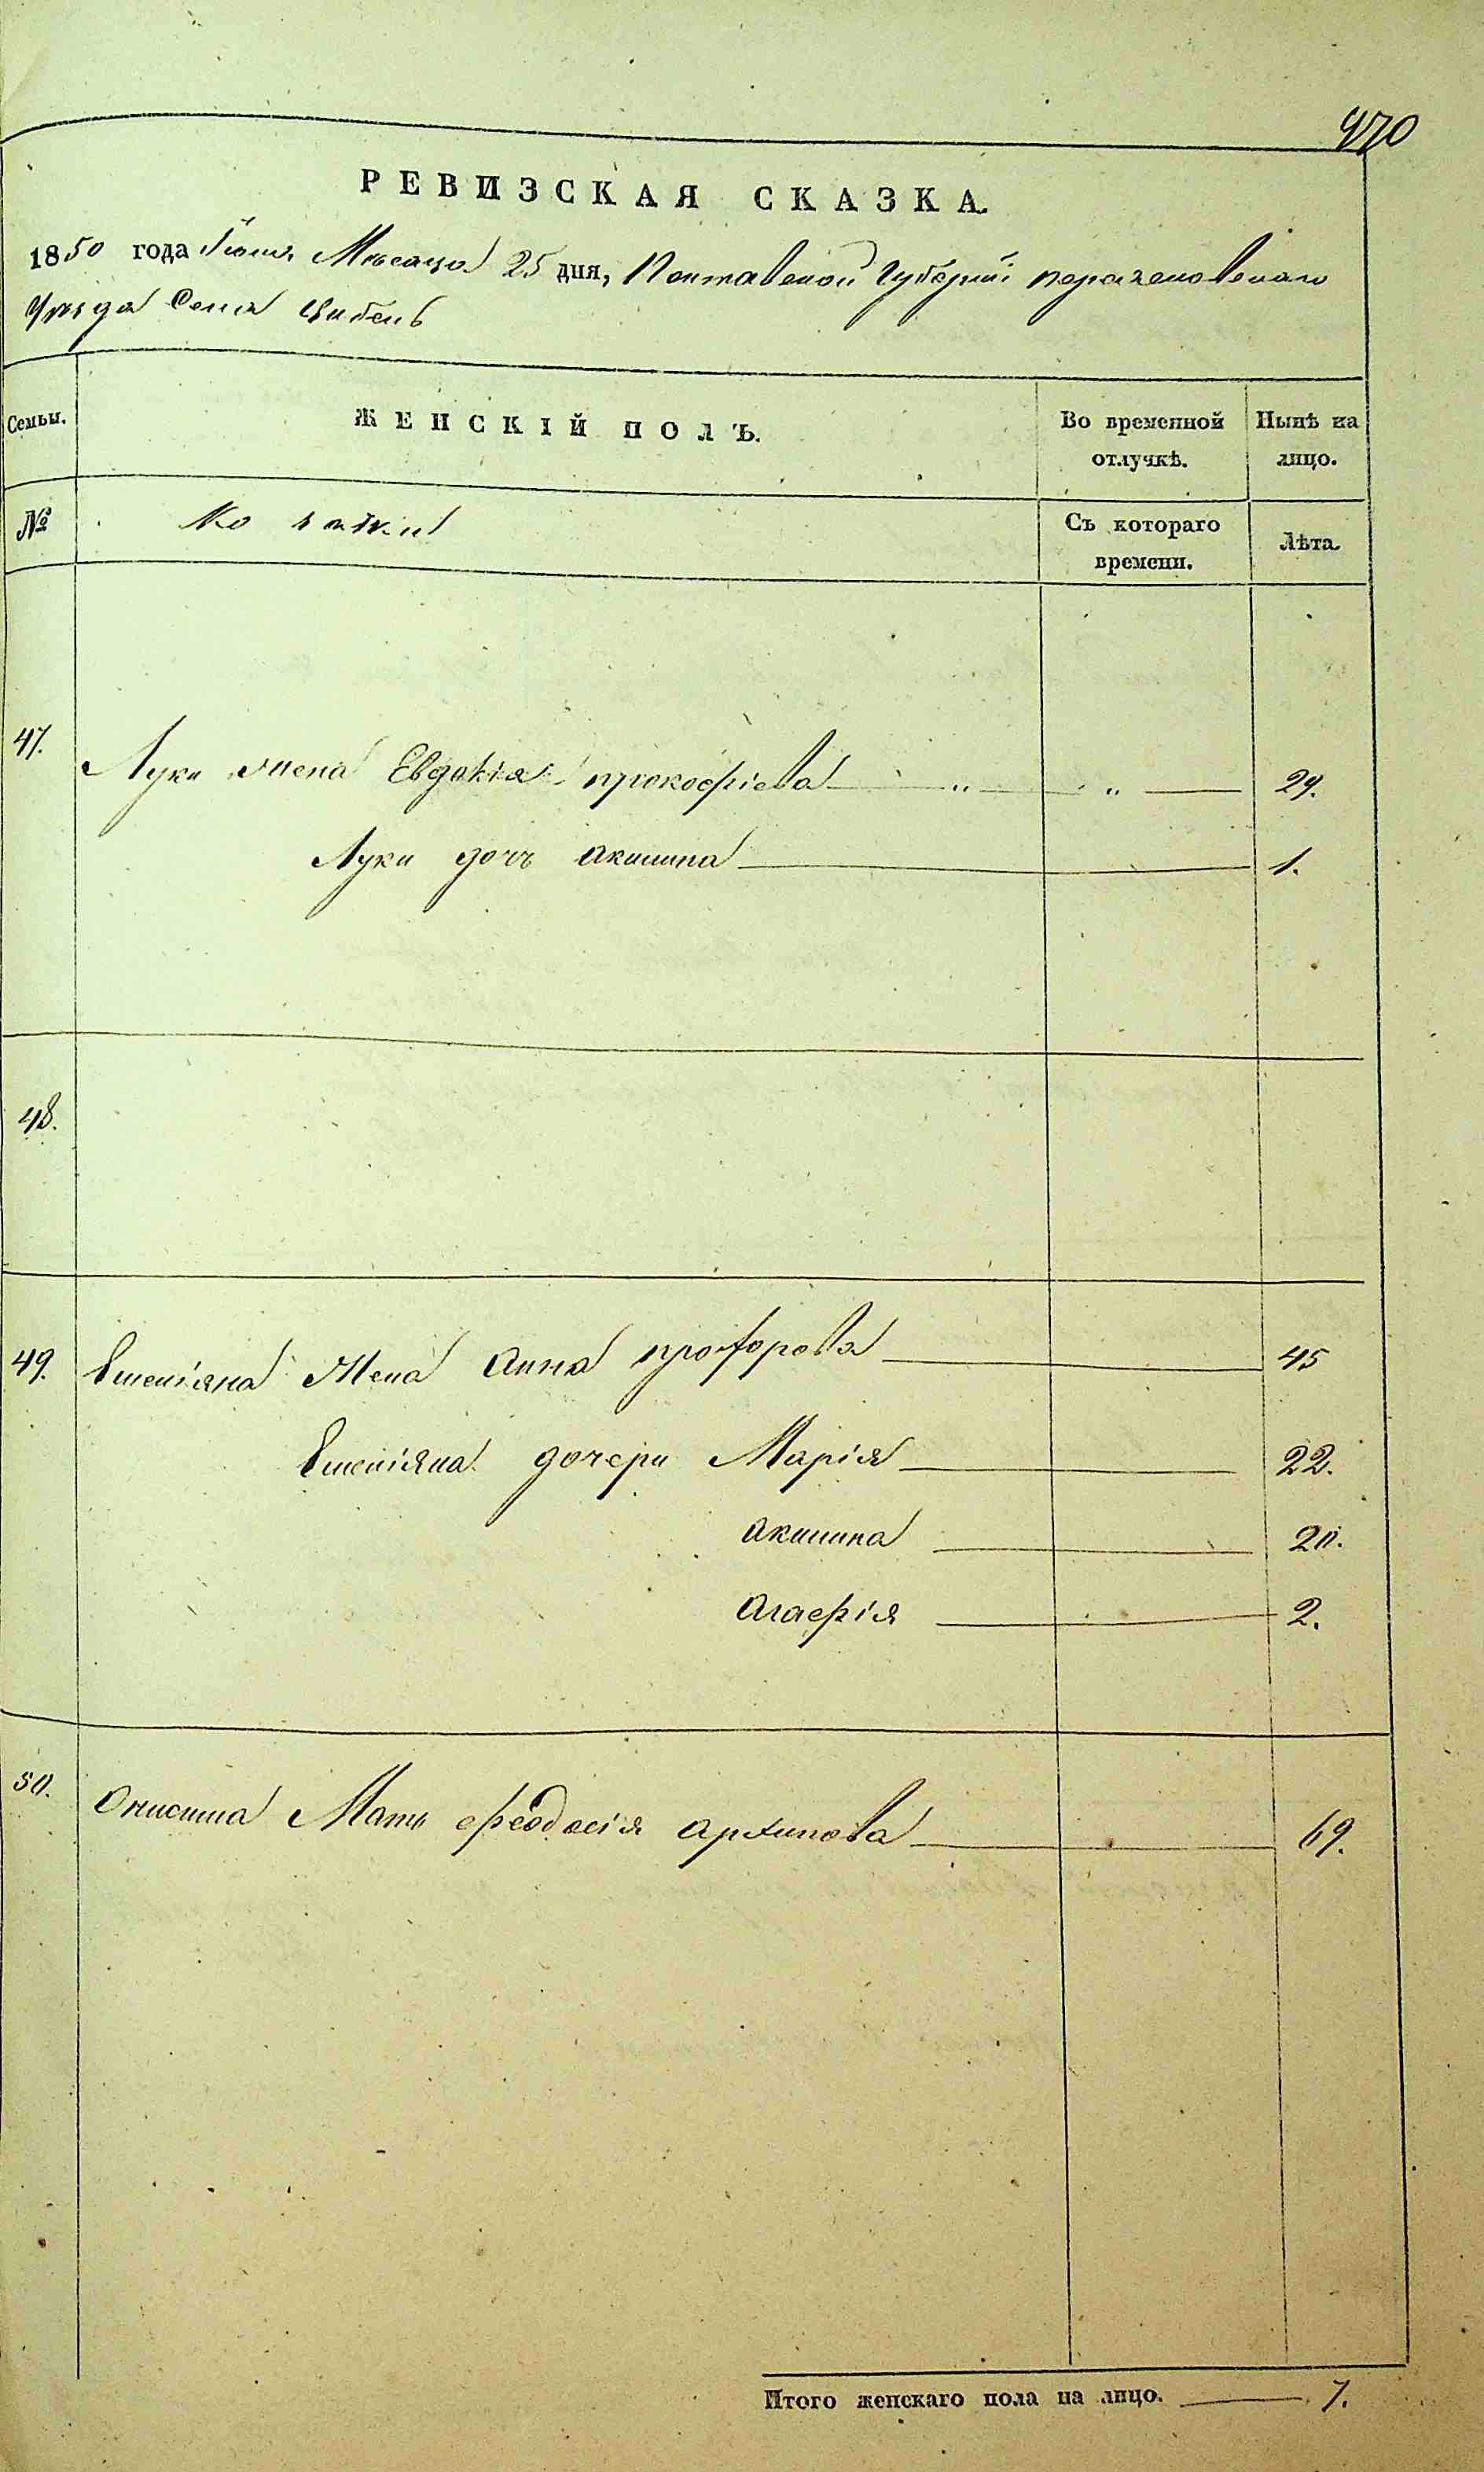 470
РЕВИЗСКАЯ СКАЗКА.
1850 года Іюня Месяца 25 дня, Полтавской Губерніи переяславскаго
Уѣзда Села Цибель
Семьи.
ЖЕНСКІЙ ПОЛЪ.
Во временной отлучкѣ.
Нынѣ на лицо.
№
Козачки
Съ котораго времени.
Лѣта.
47. Луки Жена Евдокія прокофіева „ „ 29.
Луки дочь акилина 1.
48.
49. Емелiяна Жена Анна прохорова 45
Емелiяна дочери Марія 22.
акилина 20.
Агафія 2.
50. Онисима Мать феодосія архипова 69.
Итого женскаго пола на лицо. 7.